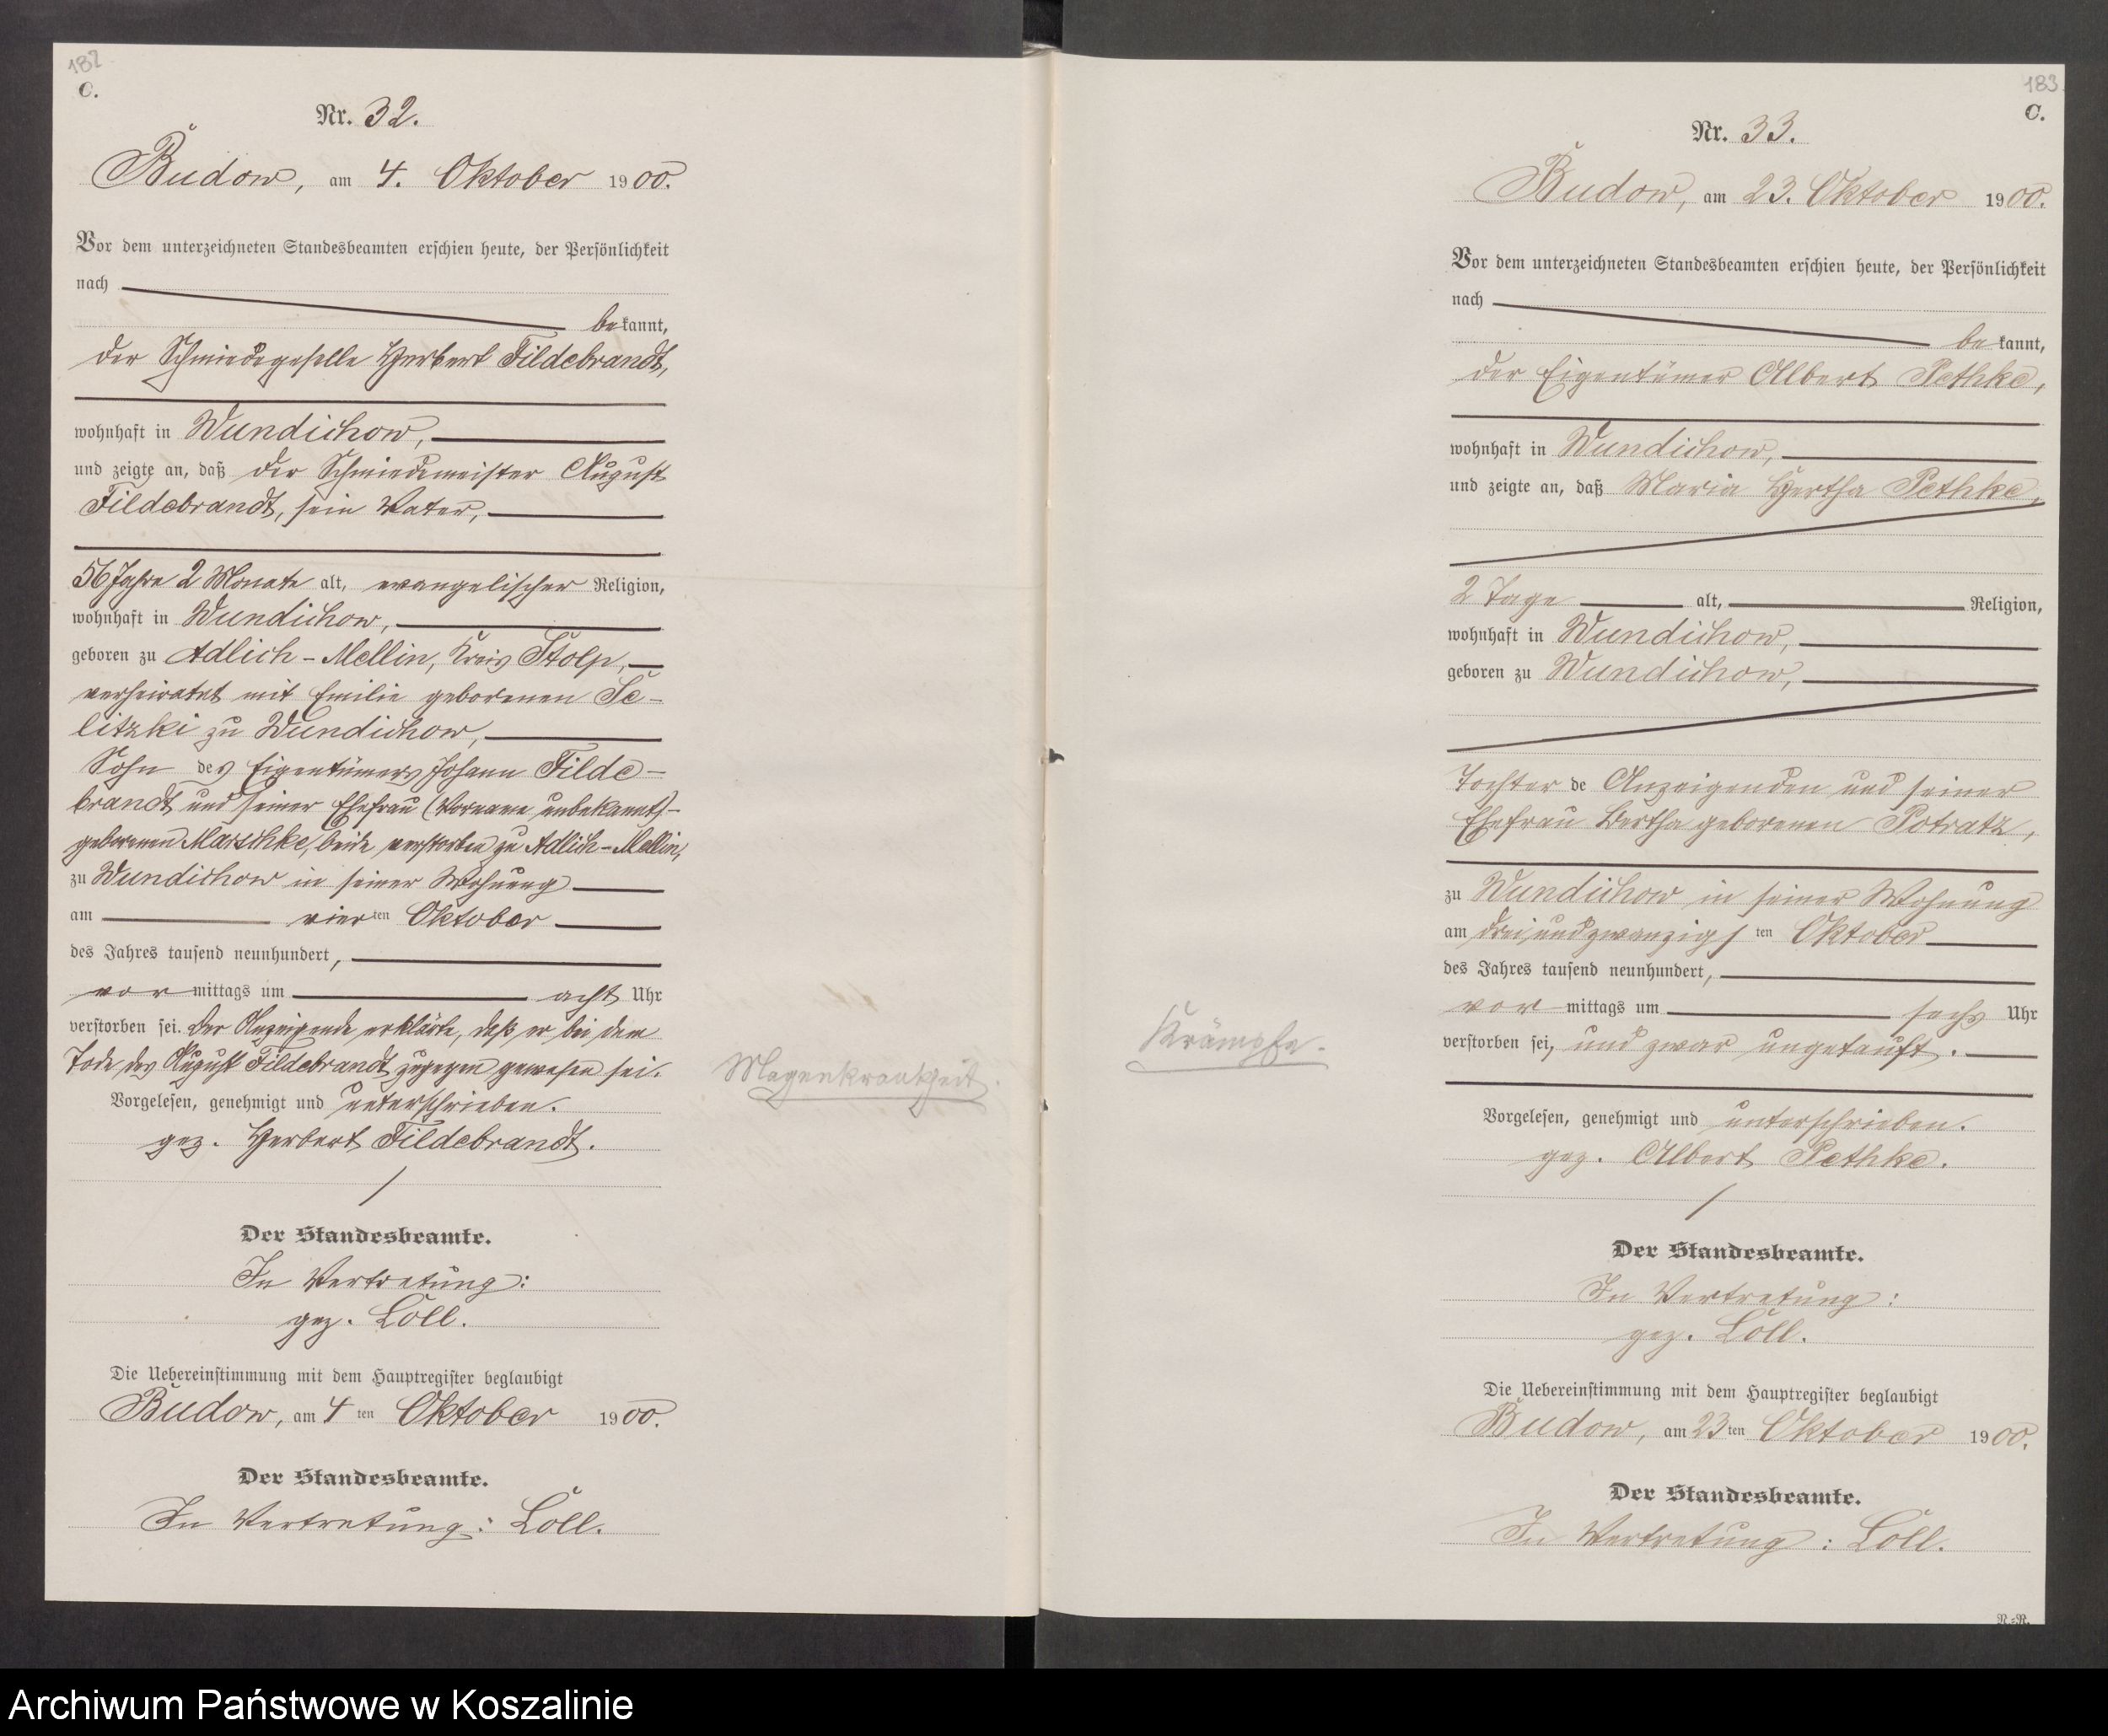 182
C.
Nr. 32.
Budow, am 4. Oktober 1900.
Vor dem unterzeichneten Standesbeamten erschien heute, der Persönlichkeit
nach
bekannt,
der Schmiedegeselle Herbert Fildebrandt,
wohnhaft in Wundichow,
und zeigte an, daß der Schmiedemeister August
Fildebrandt, sein Vater,
56 Jahre 2 Monate alt, evangelischer Religion,
wohnhaft in Wundichow,
geboren zu Adlich-Mellin, Kreis Stolp,
verheiratet mit Emilie geborenen Se-
litzki zu Wundichow,
Sohn des Eigentümers Johann Filde-
brandt und seiner Ehefrau (Vorname unbekannt)-
geborenen Marschke, beide verstorben zu Adlich-Mellin,
zu Wundichow in seiner Wohnung
am vierten Oktober
des Jahres tausend neunhundert,
vormittags um acht Uhr
verstorben sei. Der Anzeigende erklärte, daß er bei dem
Tode des August Fildebrandt zugegen gewesen sei.
Magenkrankheit.
Vorgelesen, genehmigt und unterschrieben.
gez. Herbert Fildebrandt.
Der Standesbeamte.
In Vertretung:
gez. Löll.
Die Uebereinstimmung mit dem Hauptregister beglaubigt
Budow, am 4ten Oktober 1900.
Der Standesbeamte.
In Vertretung: Löll.
183
C.
Nr. 33.
Budow, am 23. Oktober 1900.
Vor dem unterzeichneten Standesbeamten erschien heute, der Persönlichkeit
nach
bekannt,
der Eigentümer Albert Pethke,
wohnhaft in Wundichow,
und zeigte an, daß Maria Hertha Pethke,
2 Tage alt, Religion,
wohnhaft in Wundichow,
geboren zu Wundichow,
Tochter de Anzeigenden und seiner
Ehefrau Bertha geborenen Potratz,
zu Wundichow in seiner Wohnung
am drei und zwanzigsten Oktober
des Jahres tausend neunhundert,
vormittags um sechs Uhr
verstorben sei, und zwar ungetauft.
Krämpfe.
Vorgelesen, genehmigt und unterschrieben.
gez. Albert Pethke.
Der Standesbeamte.
In Vertretung:
gez. Löll.
Die Uebereinstimmung mit dem Hauptregister beglaubigt
Budow, am 23ten Oktober 1900.
Der Standesbeamte.
In Vertretung: Löll.
N.=N.
Archiwum Państwowe w Koszalinie